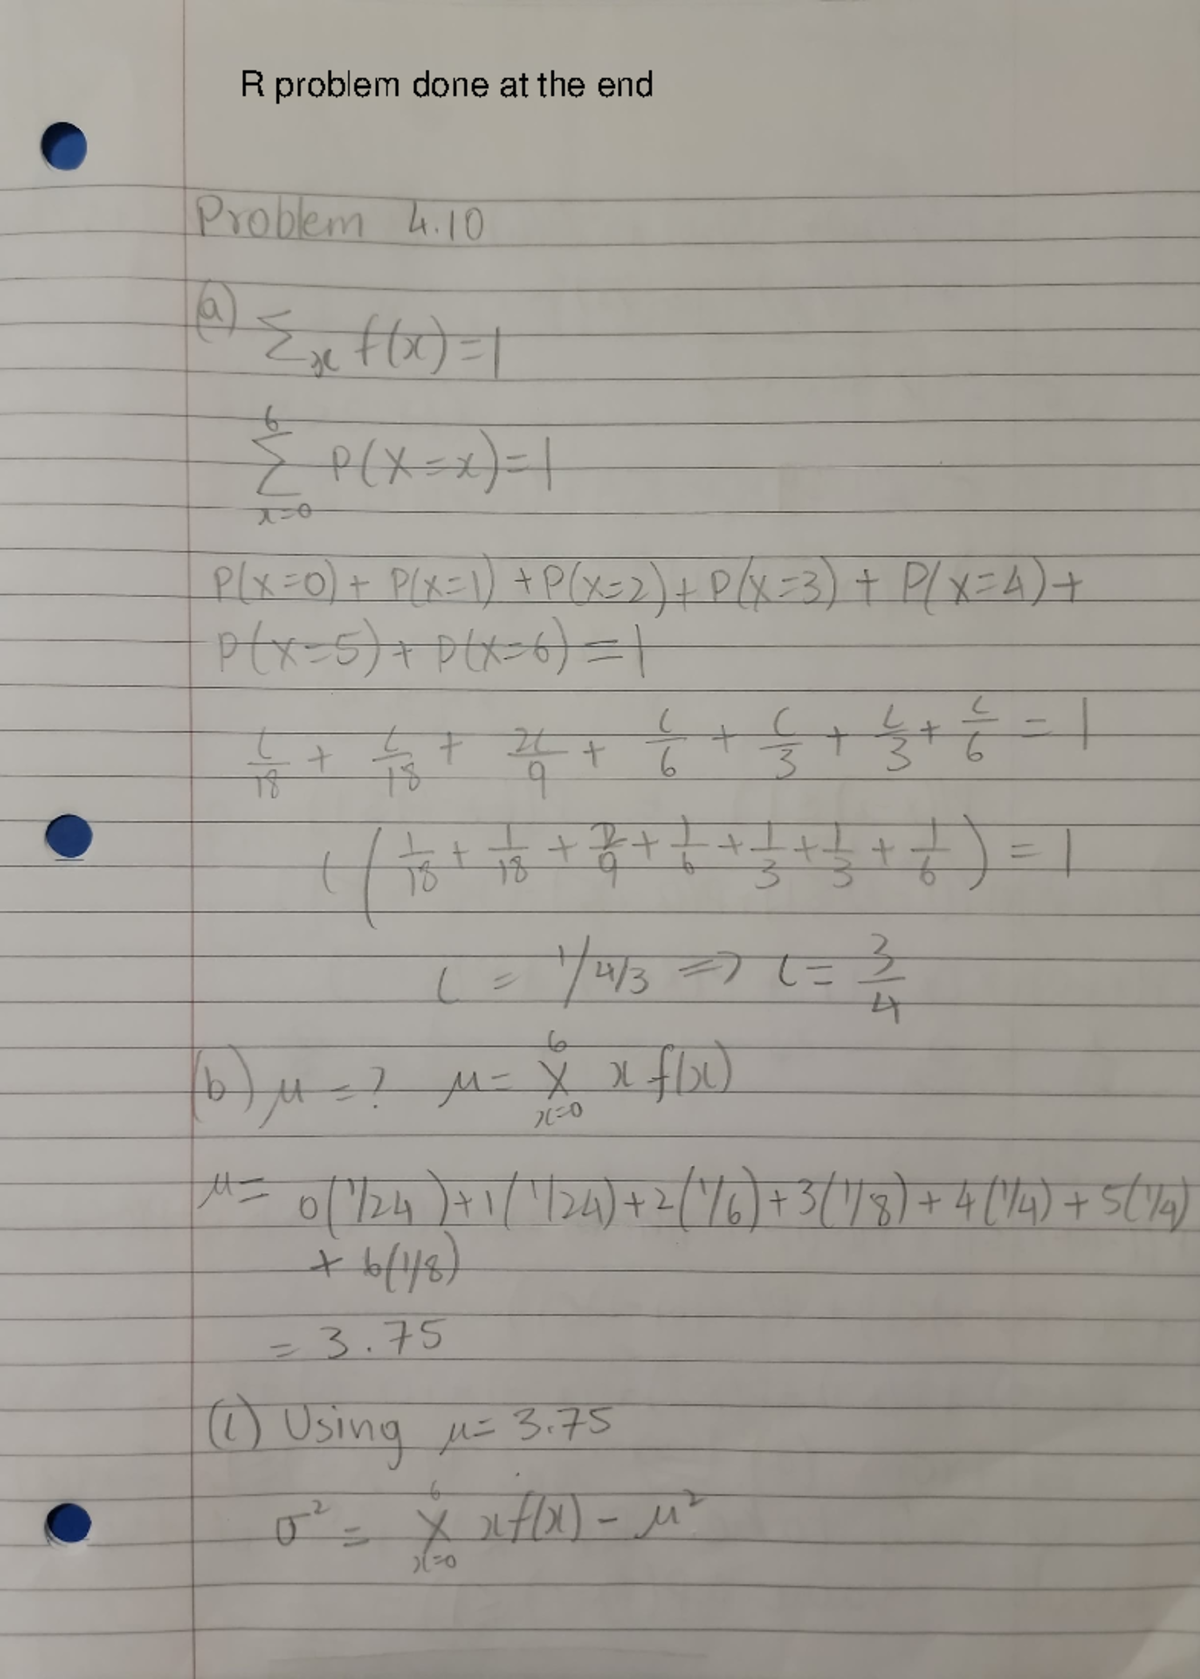 R problem done at the end
Problem 4.10
(a) Σₓ f(x) = 1
6
Σ P(X=x) = 1
x=0
P(X=0) + P(X=1) + P(X=2) + P(X=3) + P(X=4) +
P(X=5) + P(X=6) = 1
c/18 + c/18 + 2c/9 + c/6 + c/3 + c/3 + c/6 = 1
c(1/18 + 1/18 + 2/9 + 1/6 + 1/3 + 1/3 + 1/6) = 1
c = 1/4/3 => c = 3/4
(b) μ = ? μ = Σ x f(x)
6
x=0
μ = 0(1/24) + 1(1/24) + 2(1/6) + 3(1/8) + 4(1/4) + 5(1/4)
+ 6(1/8)
= 3.75
(c) Using μ = 3.75
6
σ² = Σ x f(x) - μ²
x=0